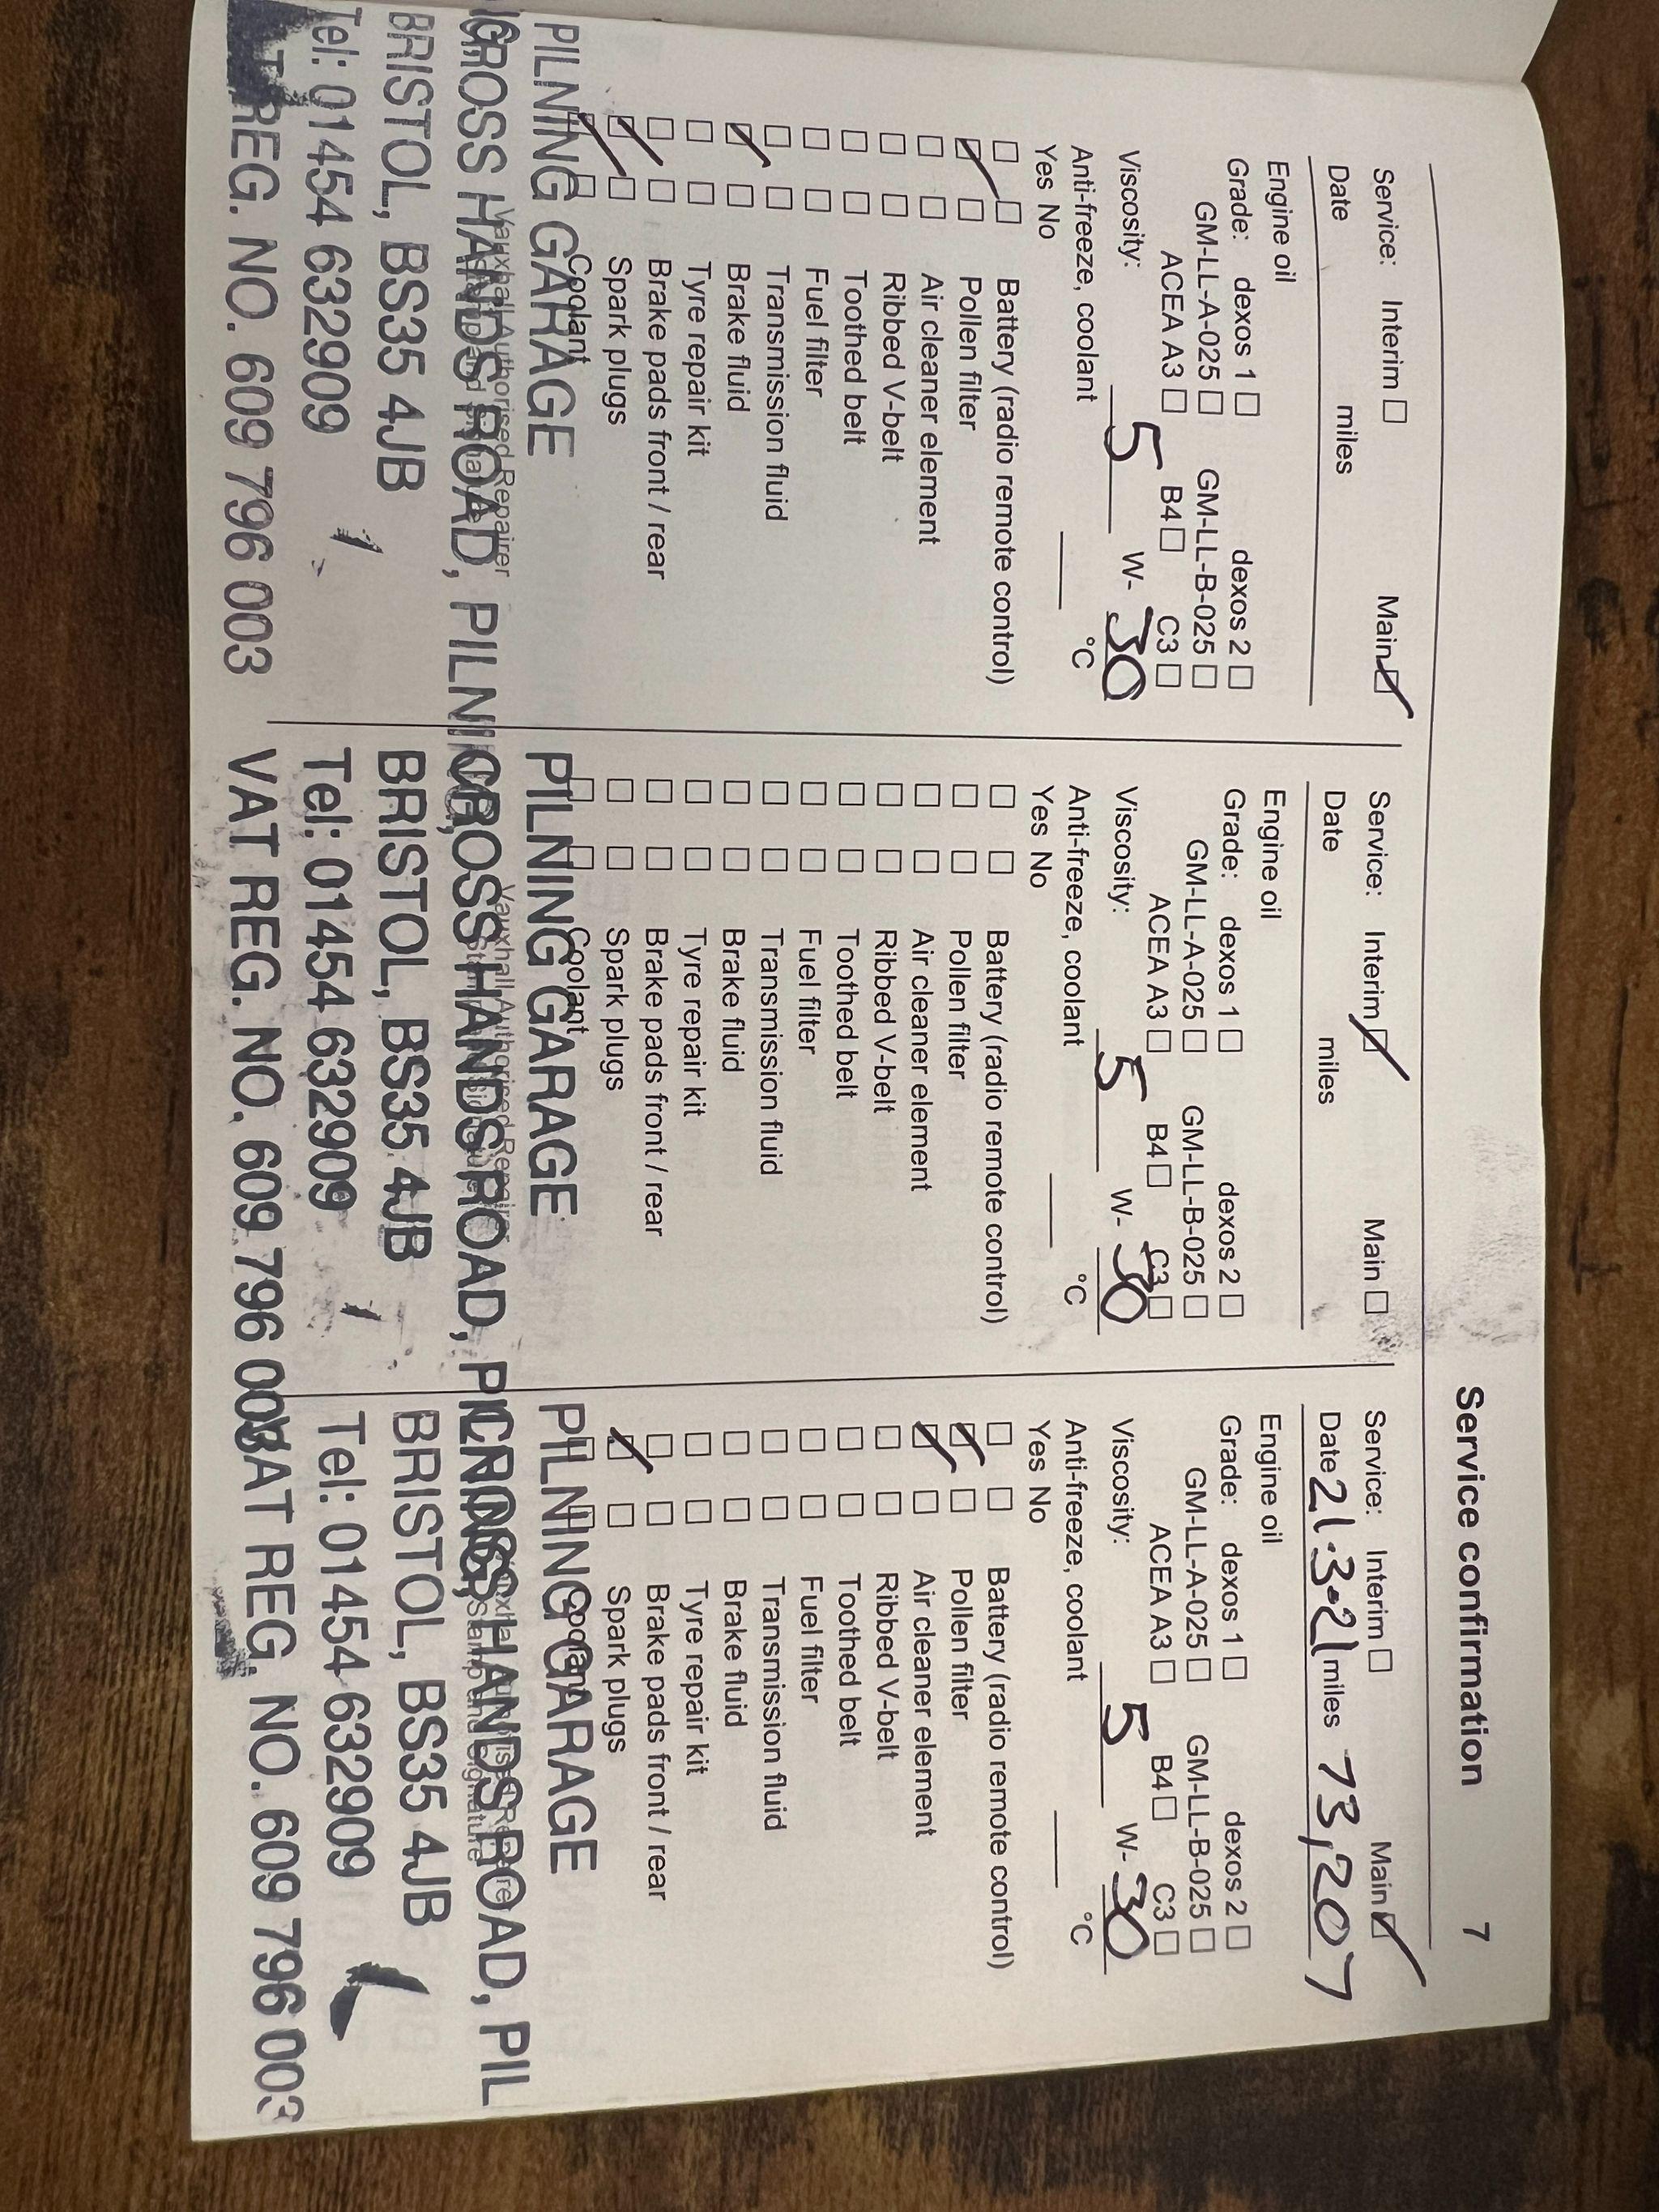 Service confirmation 7
Service: Interim ☐ Main ☑
Date miles
Engine oil
Grade: dexos 1 ☐ dexos 2 ☐
GM-LL-A-025 ☐ GM-LL-B-025 ☐
ACEA A3 ☐ B4 ☐ C3 ☐
Viscosity: 5 W- 30
Anti-freeze, coolant °C
Yes No
☐ ☐ Battery (radio remote control)
☑ ☐ Pollen filter
☐ ☐ Air cleaner element
☐ ☐ Ribbed V-belt
☐ ☐ Toothed belt
☐ ☐ Fuel filter
☐ ☐ Transmission fluid
☑ ☐ Brake fluid
☐ ☐ Tyre repair kit
☐ ☐ Brake pads front / rear
☑ ☐ Spark plugs
☑ ☐ Coolant
Vauxhall Authorised Repairer
PILNING GARAGE
CROSS HANDS ROAD, PILNING,
BRISTOL, BS35 4JB
Tel: 01454 632909
REG. NO. 609 796 003
Service: Interim ☑ Main ☐
Date miles
Engine oil
Grade: dexos 1 ☐ dexos 2 ☐
GM-LL-A-025 ☐ GM-LL-B-025 ☐
ACEA A3 ☐ B4 ☐ C3 ☐
Viscosity: 5 W- 30
Anti-freeze, coolant °C
Yes No
☐ ☐ Battery (radio remote control)
☐ ☐ Pollen filter
☐ ☐ Air cleaner element
☐ ☐ Ribbed V-belt
☐ ☐ Toothed belt
☐ ☐ Fuel filter
☐ ☐ Transmission fluid
☐ ☐ Brake fluid
☐ ☐ Tyre repair kit
☐ ☐ Brake pads front / rear
☐ ☐ Spark plugs
☐ ☐ Coolant
Vauxhall Authorised Repairer
PILNING GARAGE
CROSS HANDS ROAD, PILNING,
BRISTOL, BS35 4JB
Tel: 01454 632909
VAT REG. NO. 609 796 003
Service: Interim ☐ Main ☑
Date 21.3.21 miles 73,207
Engine oil
Grade: dexos 1 ☐ dexos 2 ☐
GM-LL-A-025 ☐ GM-LL-B-025 ☐
ACEA A3 ☐ B4 ☐ C3 ☐
Viscosity: 5 W- 30
Anti-freeze, coolant °C
Yes No
☐ ☐ Battery (radio remote control)
☑ ☐ Pollen filter
☑ ☐ Air cleaner element
☐ ☐ Ribbed V-belt
☐ ☐ Toothed belt
☐ ☐ Fuel filter
☐ ☐ Transmission fluid
☐ ☐ Brake fluid
☐ ☐ Tyre repair kit
☐ ☐ Brake pads front / rear
☑ ☐ Spark plugs
☐ ☐ Coolant
Stamp and signature
PILNING GARAGE
CROSS HANDS ROAD, PIL
BRISTOL, BS35 4JB
Tel: 01454 632909
VAT REG. NO. 609 796 003